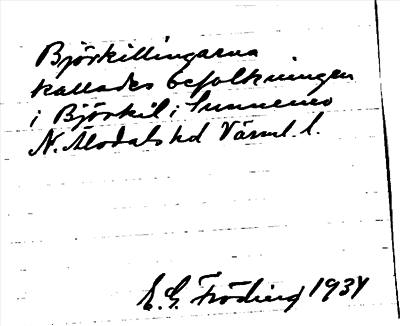 Björkillingarna
kallades befolkningen
i Björkil i Sunnemo
N. Älvdals hd Värml. l.
E. G. Fröding 1934